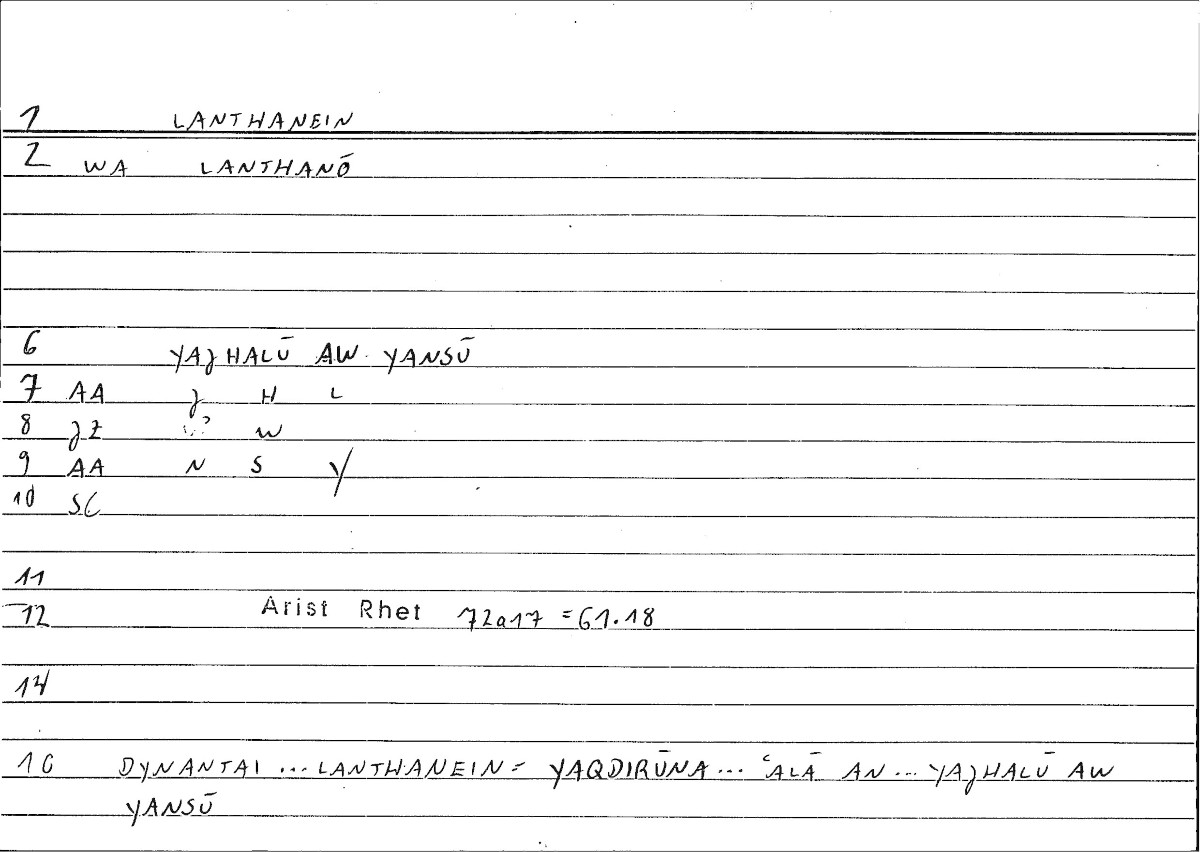 1 LANTHANEIN
2 WA LANTHANŌ
6 YAJHALŪ AW YANSŪ
7 AA J H L
8 JZ ? W
9 AA N S Y
10 SC
11
12 Arist Rhet 72a17 = 61.18
14
16 DYNANTAI ... LANTHANEIN = YAQDIRŪNA ... ʿALĀ AN ... YAJHALŪ AW
YANSŪ